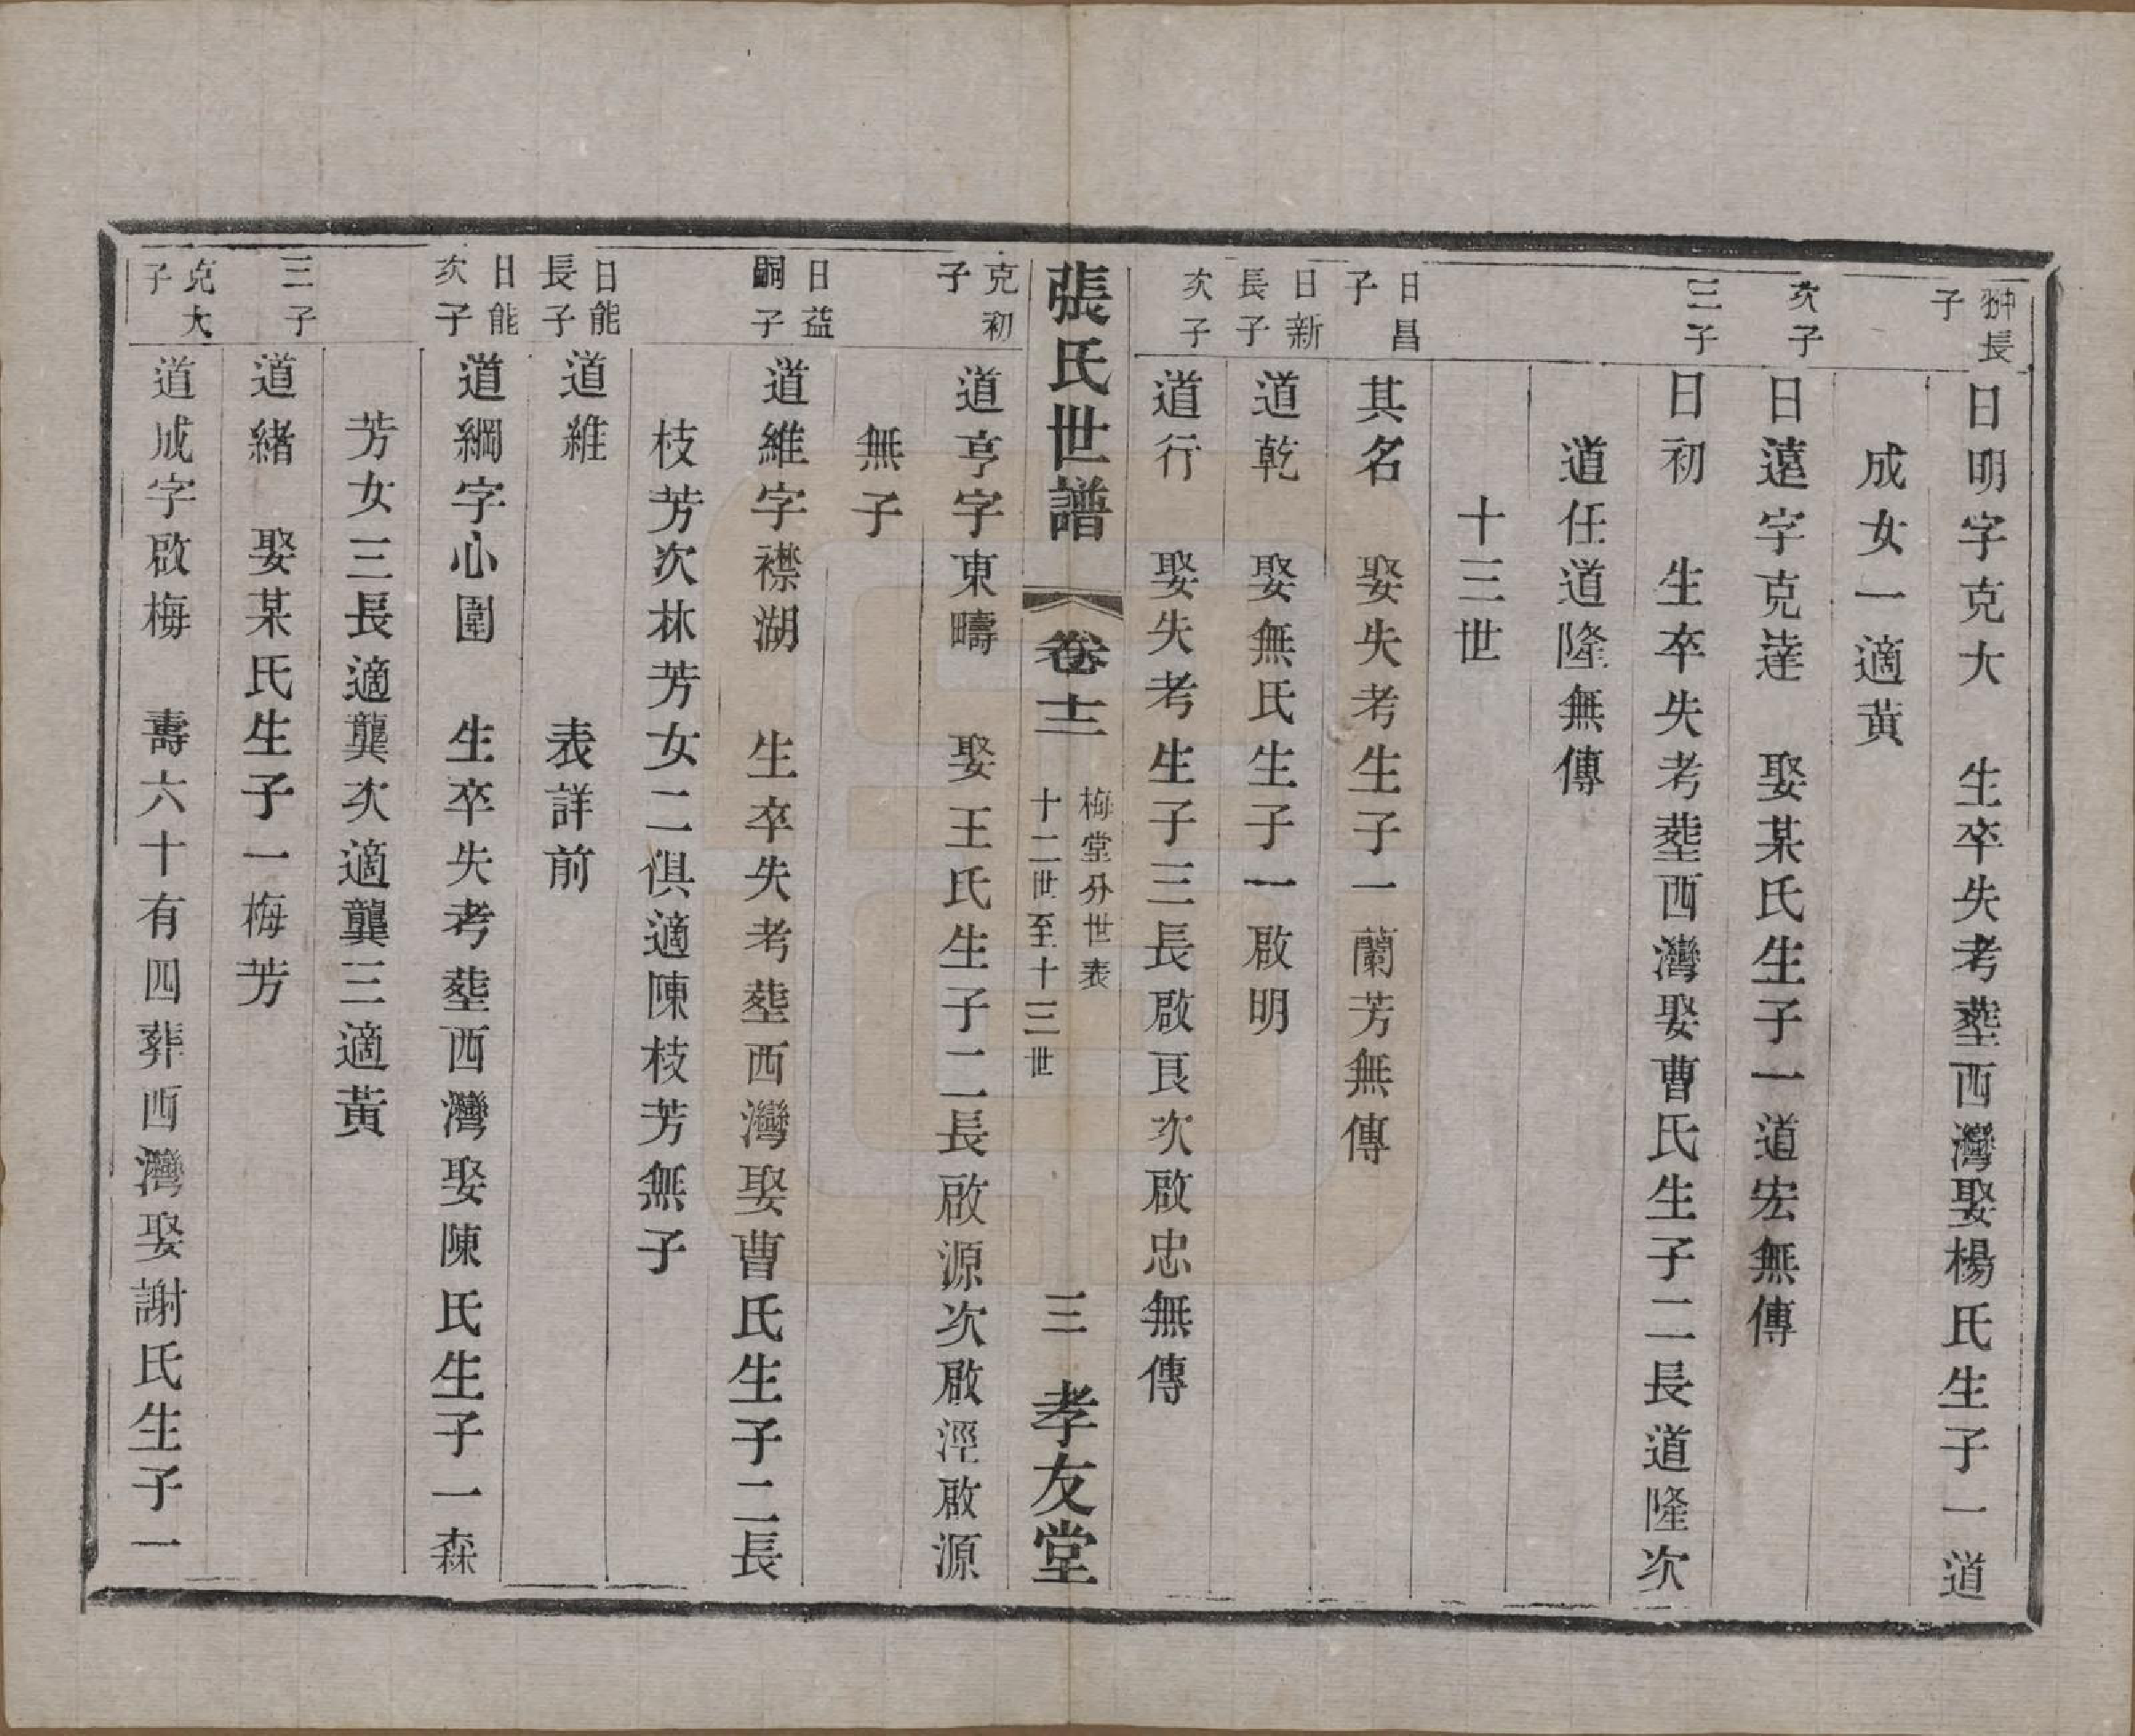 翀長子
日明字克大　生卒失考塟西灣娶楊氏生子一道
成女一適黃
次子
日遠字克達　娶某氏生子一道宏無傳
三子
日初　生卒失考塟西灣娶曹氏生子二長道隆次
道任道隆無傳
十三世
日昌子
其名　娶失考生子一蘭芳無傳
日新長子
道乾　娶無氏生子一啟明
次子
道行　娶失考生子三長啟良次啟忠無傳
張氏世譜　卷十二　梅堂分世表　十二世至十三世　三　孝友堂
克初子
道亨字東疇　娶王氏生子二長啟源次啟涇啟源
無子
日益嗣子
道維字襟湖　生卒失考塟西灣娶曹氏生子二長
枝芳次林芳女二俱適陳枝芳無子
日能長子
道維　表詳前
日能次子
道綱字心圍　生卒失考塟西灣娶陳氏生子一森
芳女三長適龔次適龔三適黃
三子
道緒　娶某氏生子一梅芳
克大子
道成字啟梅　壽六十有四葬西灣娶謝氏生子一